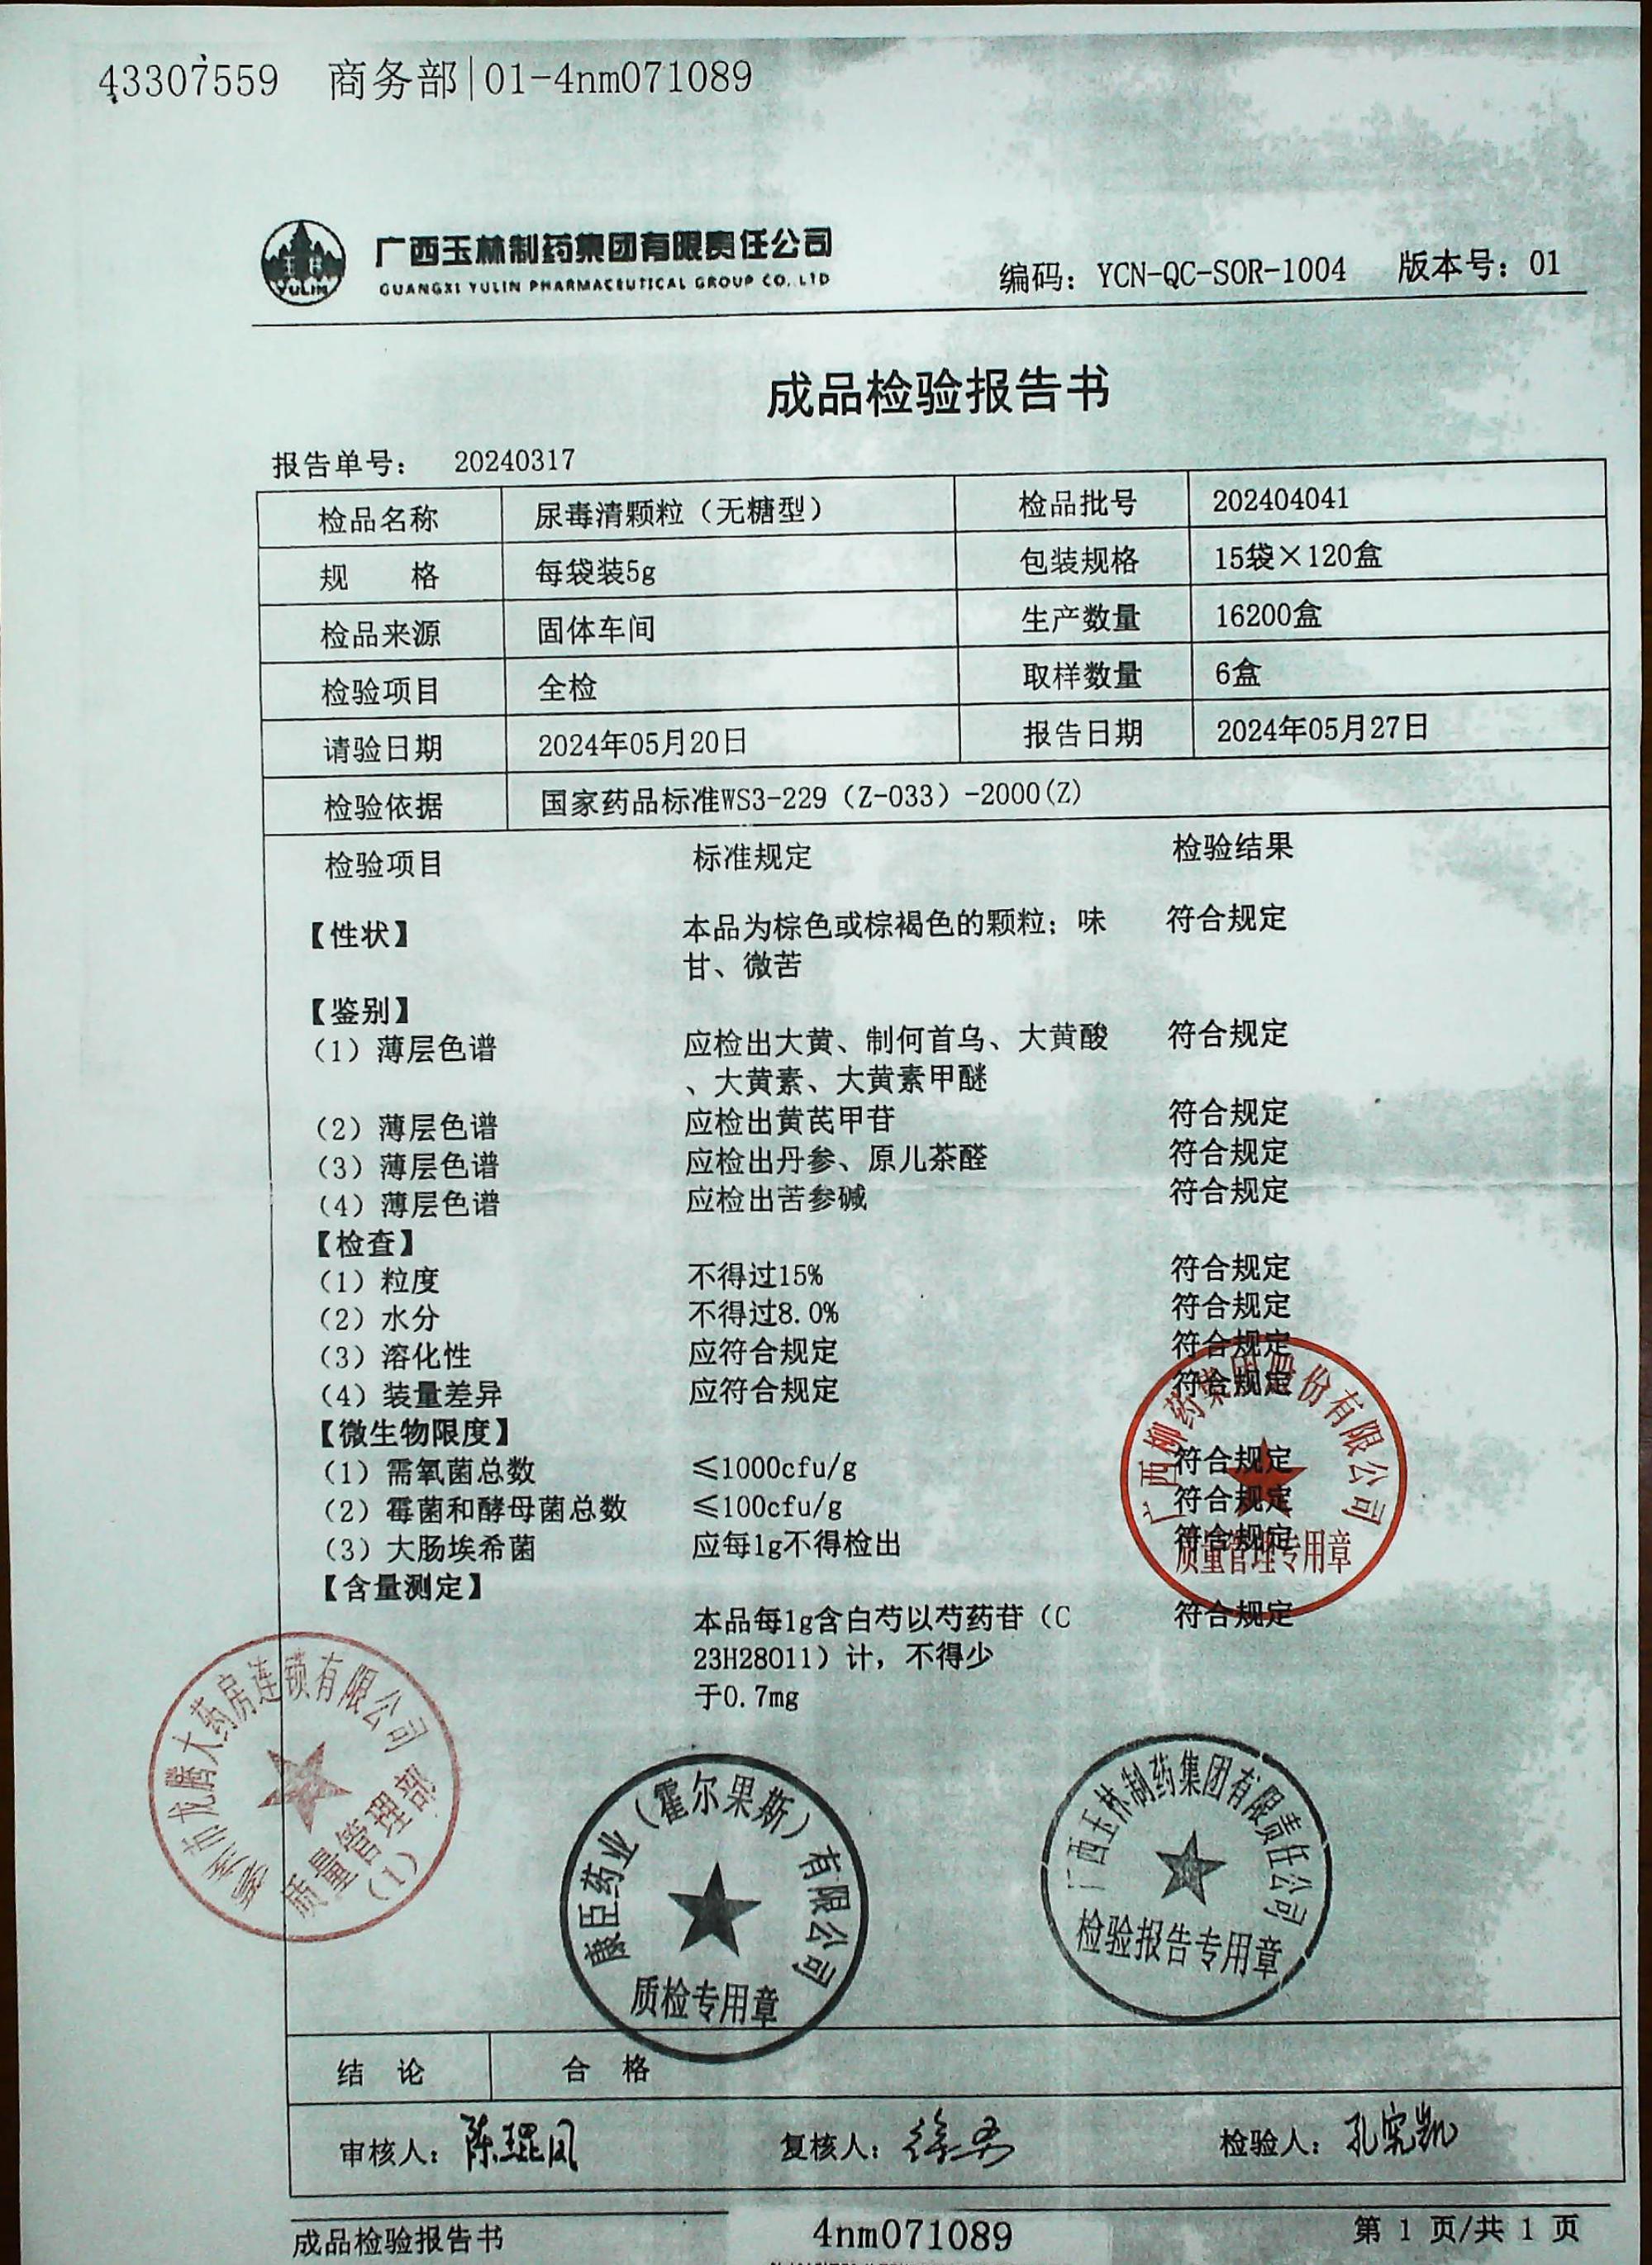 43307559 商务部|01-4nm071089
YULIN
广西玉林制药集团有限责任公司
GUANGXI YULIN PHARMACEUTICAL GROUP CO.,LTD
编码：YCN-QC-SOR-1004 版本号：01
成品检验报告书
报告单号： 20240317
检品名称 尿毒清颗粒（无糖型） 检品批号 202404041
规 格 每袋装5g 包装规格 15袋×120盒
检品来源 固体车间 生产数量 16200盒
检验项目 全检 取样数量 6盒
请验日期 2024年05月20日 报告日期 2024年05月27日
检验依据 国家药品标准WS3-229（Z-033）-2000(Z)
检验项目 标准规定 检验结果
【性状】 本品为棕色或棕褐色的颗粒；味 符合规定
甘、微苦
【鉴别】
（1）薄层色谱 应检出大黄、制何首乌、大黄酸 符合规定
、大黄素、大黄素甲醚
（2）薄层色谱 应检出黄芪甲苷 符合规定
（3）薄层色谱 应检出丹参、原儿茶醛 符合规定
（4）薄层色谱 应检出苦参碱 符合规定
【检查】
（1）粒度 不得过15% 符合规定
（2）水分 不得过8.0% 符合规定
（3）溶化性 应符合规定 符合规定
（4）装量差异 应符合规定 符合规定
【微生物限度】
（1）需氧菌总数 ≤1000cfu/g 符合规定
（2）霉菌和酵母菌总数 ≤100cfu/g 符合规定
（3）大肠埃希菌 应每1g不得检出 符合规定
【含量测定】
本品每1g含白芍以芍药苷（C 符合规定
23H28O11）计，不得少
于0.7mg
广西柳药集团股份有限公司
质量管理专用章
市龙腾大药房连锁有限公司
质量管理部
（1）
康臣药业（霍尔果斯）有限公司
质检专用章
广西玉林制药集团有限责任公司
检验报告专用章
结 论 合 格
审核人： 复核人： 检验人：
成品检验报告书 4nm071089 第 1 页/共 1 页